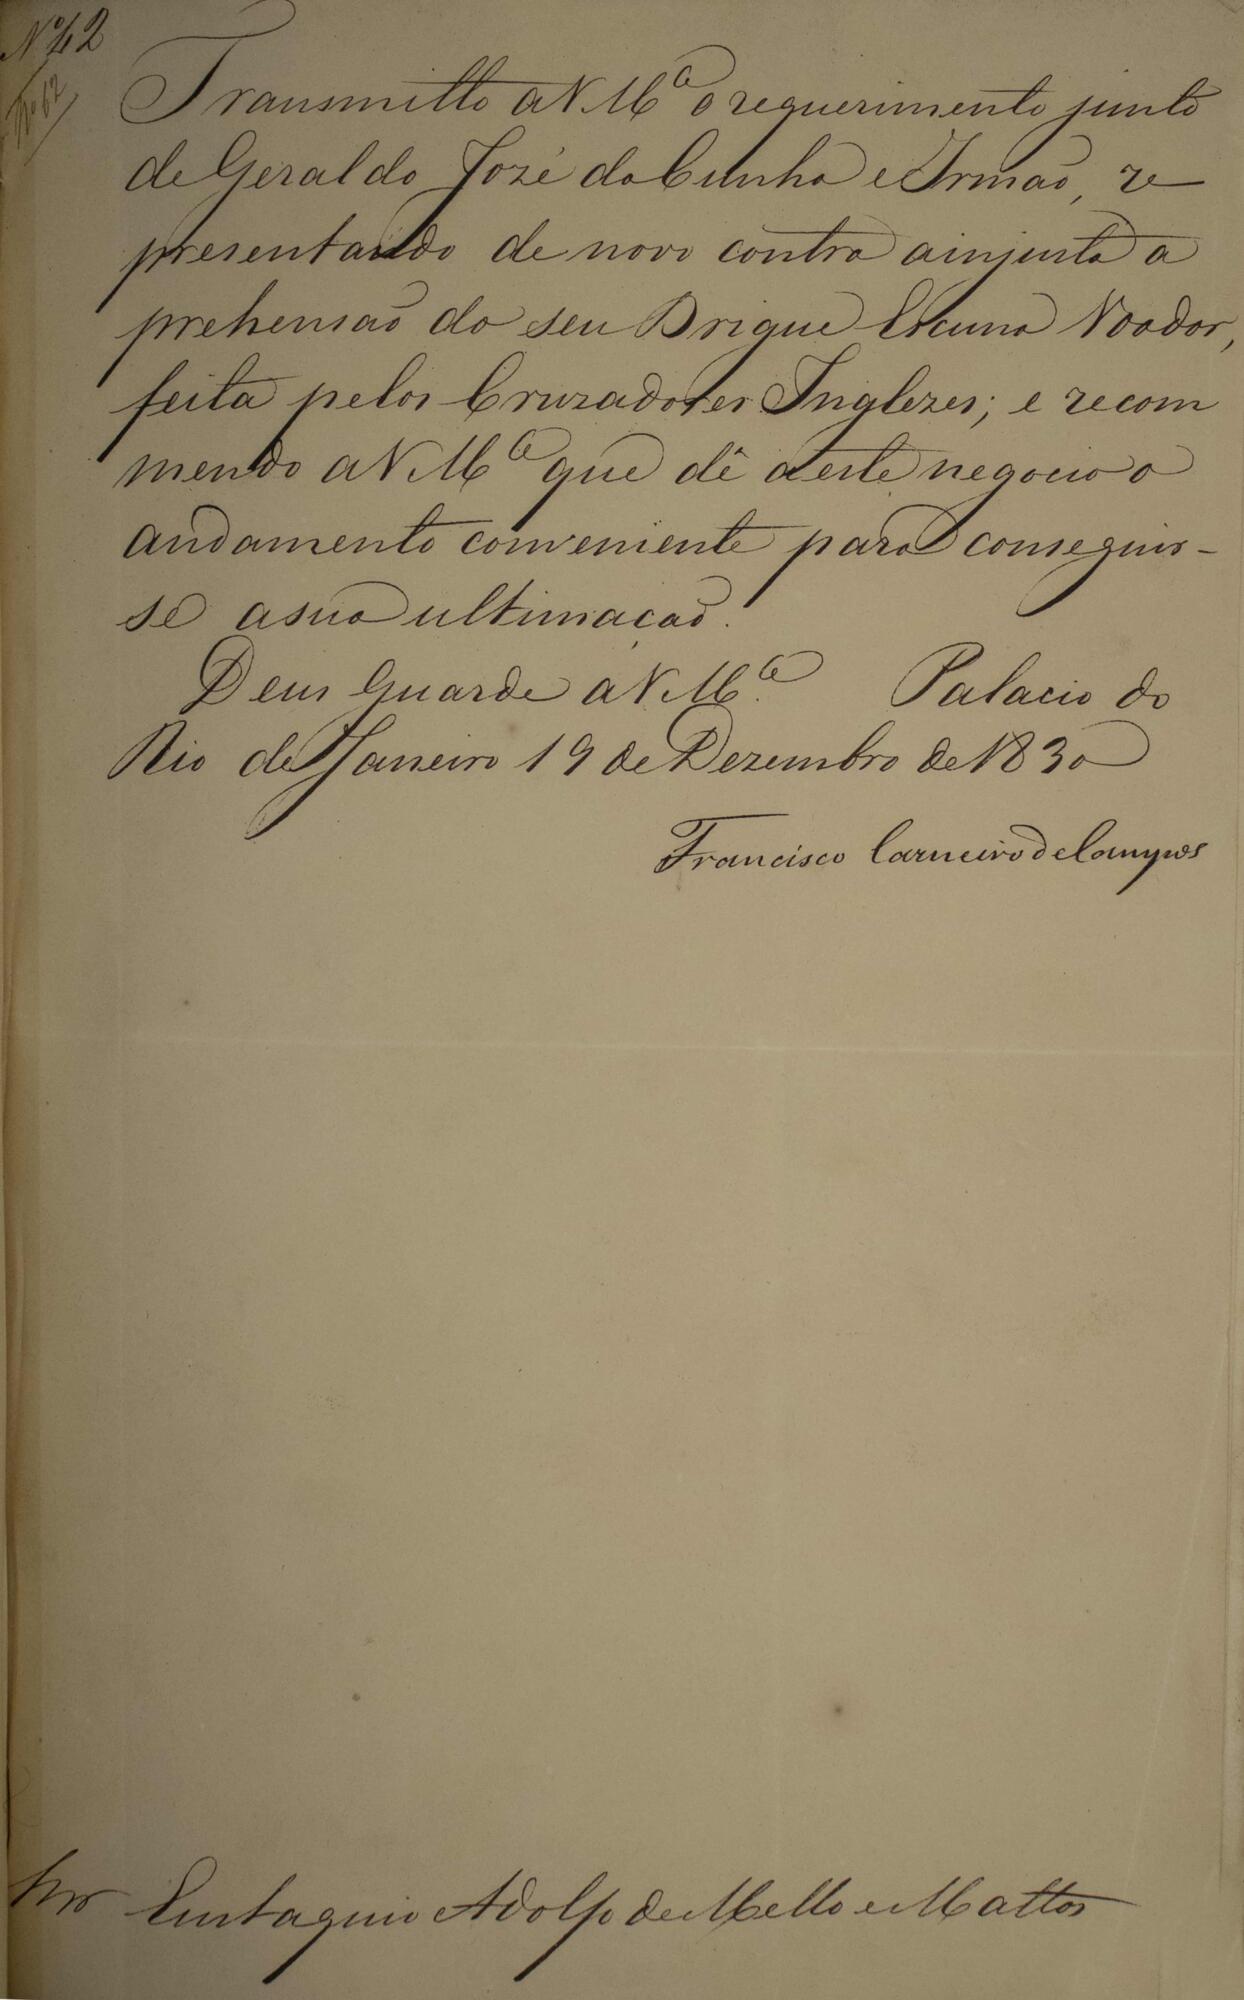 Nº 42
Nº 62
Transmitto a V M.ce o requerimento junto
de Geraldo Jozé da Cunha e Irmão, re
presentando de novo contra a injusta a
prehensão do seu Brigue Escuna Voador,
feita pelos Cruzadores Inglezes; e recom
mendo a V M.ce que dê a este negocio o
andamento conveniente para conseguir-
se a sua ultimação.
Deus Guarde a V M.ce Palacio do
Rio de Janeiro 19 de Dezembro de 1830
Francisco Carneiro de Campos
Snr Eustaquio Adolfo de Mello e Mattos